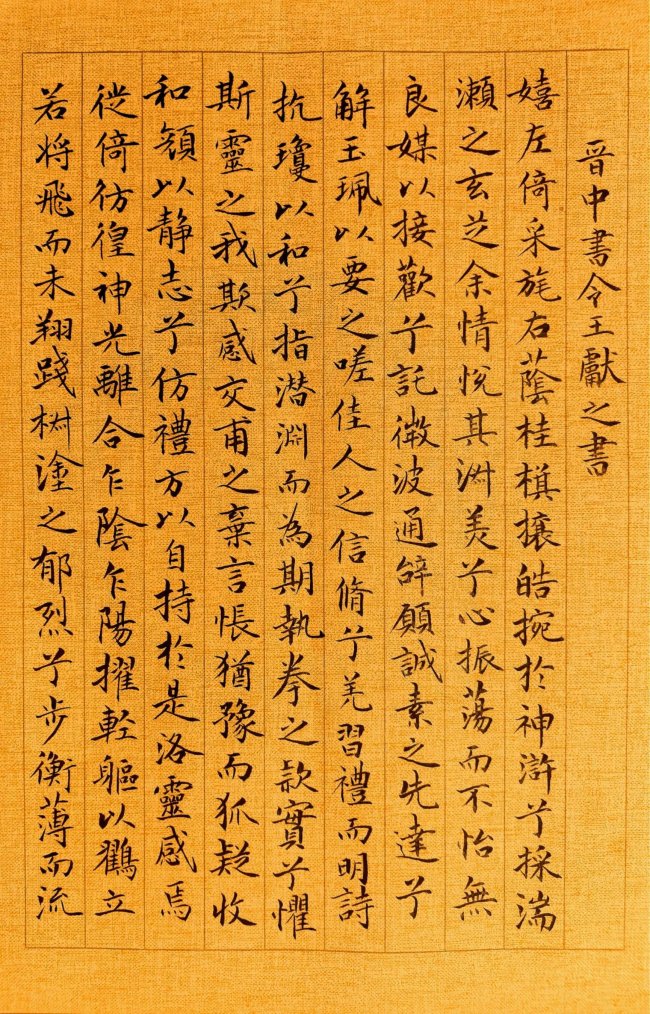 晉中書令王獻之書
嬉左倚采旄右蔭桂旗攘皓捥於神滸兮採湍
瀨之玄芝余情悅其淑美兮心振蕩而不怡無
良媒以接歡兮託微波通辞願誠素之先達兮
解玉珮以要之嗟佳人之信脩兮羌習禮而明詩
抗瓊以和兮指潜淵而為期執拳之款實兮懼
斯靈之我欺感交甫之棄言悵猶豫而狐疑收
和顏以靜志兮仿禮方以自持於是洛靈感焉
徙倚彷徨神光離合乍陰乍陽擢輕軀以鶴立
若将飛而未翔踐椒塗之郁烈兮步衡薄而流